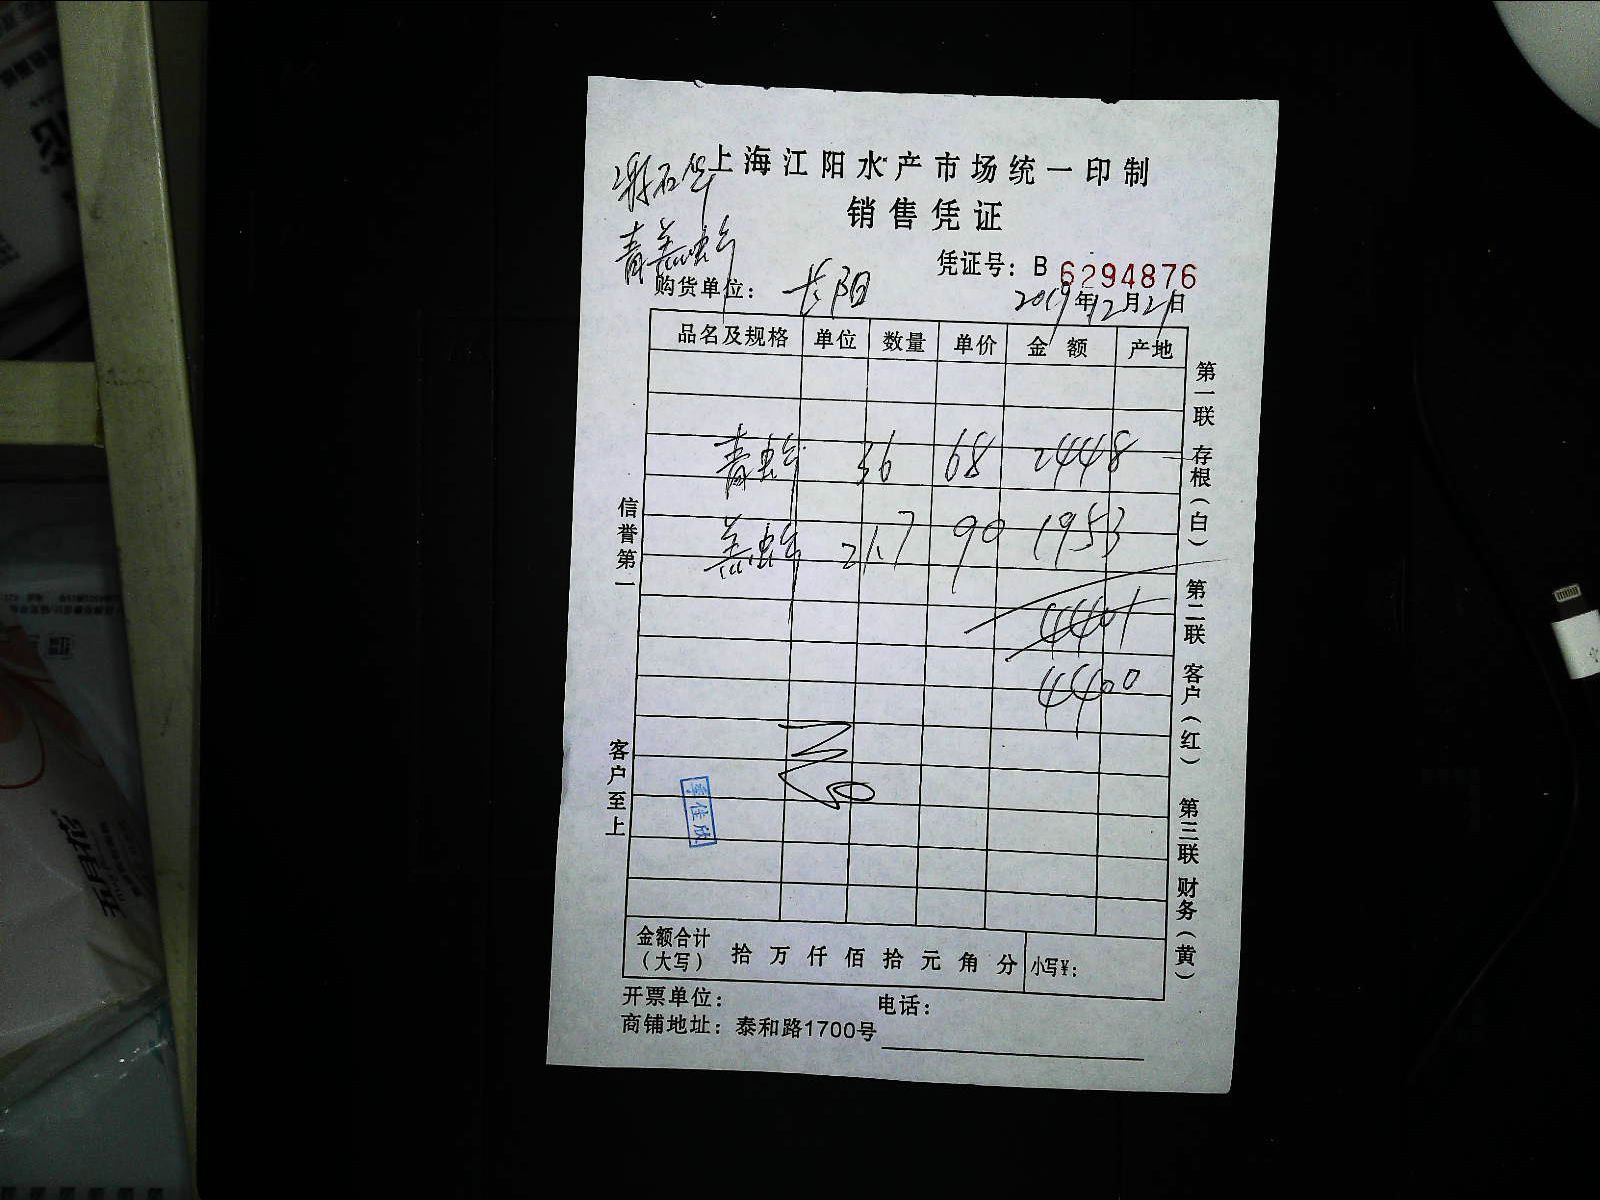 上海江阳水产市场统一印制
谢石华
销售凭证
青羔蚧
凭证号：B 6294876
购货单位：长阳
2019年12月21日
品名及规格 单位 数量 单价 金额 产地
36 68 2448
21.7 90 1953
4401
4400
李佳欣
金额合计（大写） 拾 万 仟 佰 拾 元 角 分 小写¥：
开票单位： 电话：
商铺地址：泰和路1700号
信誉第一 客户至上
第一联 存根（白） 第二联 客户（红） 第三联 财务（黄）